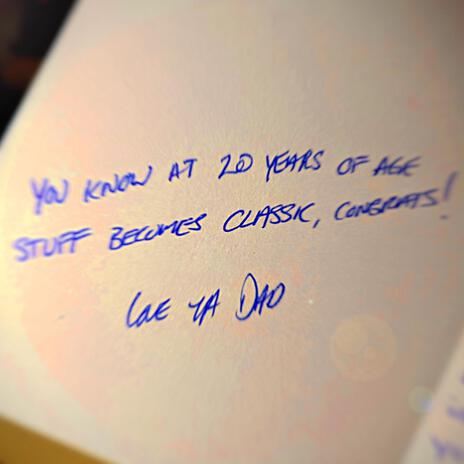 YOU KNOW AT 20 YEARS OF AGE
STUFF BECOMES CLASSIC, CONGRATS!
LOVE YA DAD